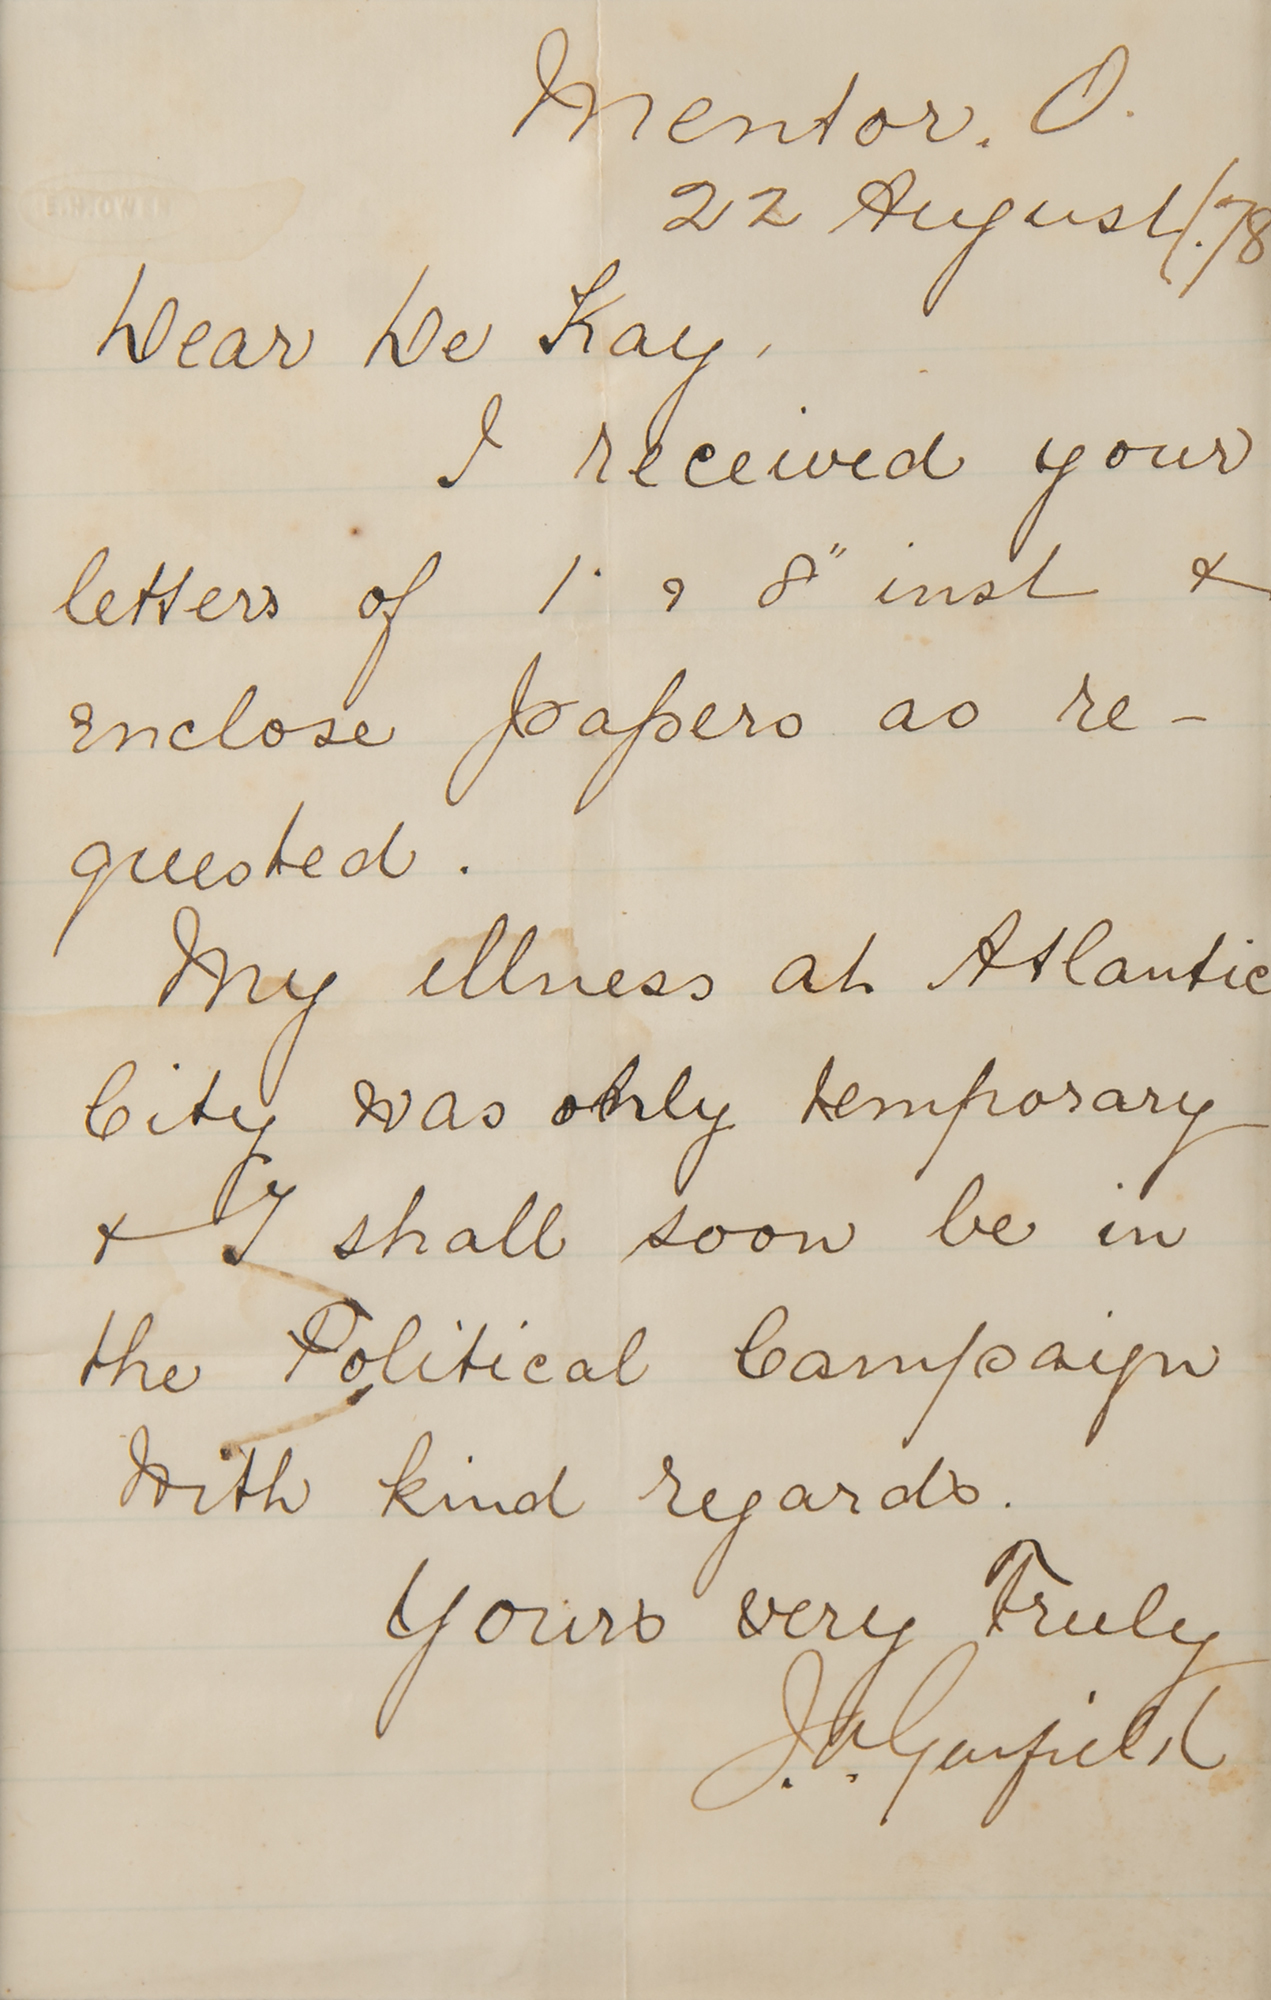 Mentor. O.
22 August/.78
Dear De Kay,
I received your
letters of 1" & 8" inst &
enclose papers as re-
quested.
My illness at Atlantic
City was only temporary
& I shall soon be in
the Political Campaign
With kind regards.
Yours very Truly
J.A. Garfield